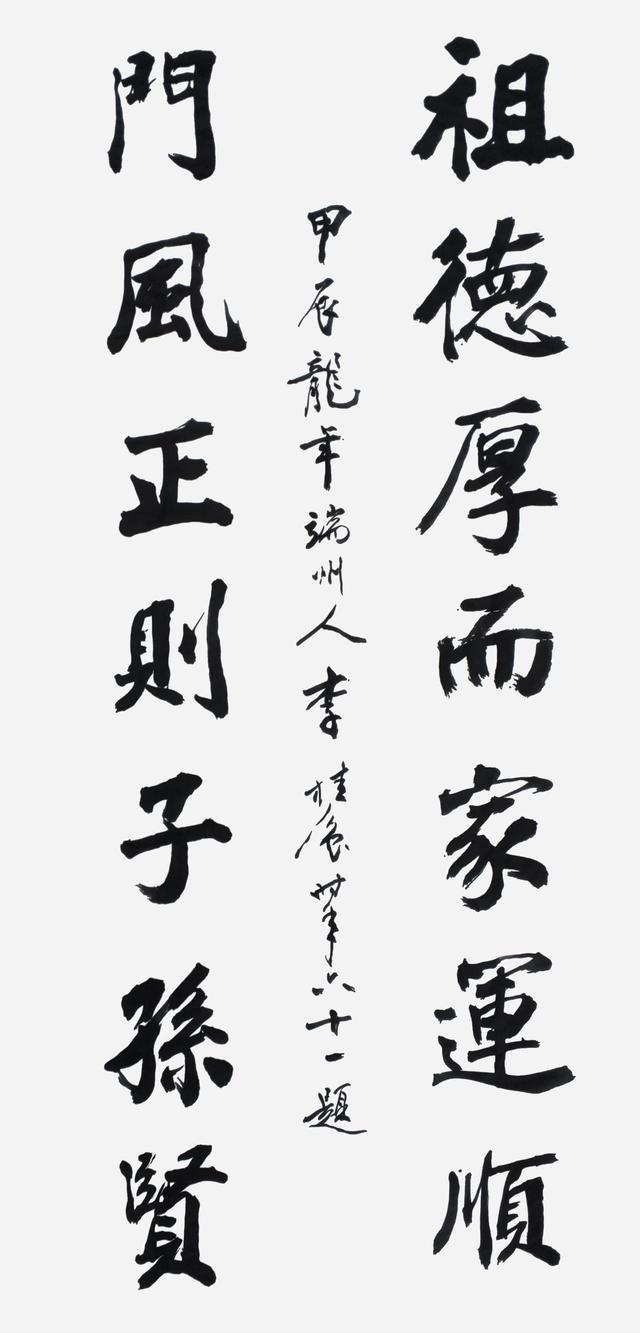 祖德厚而家運順
門風正則子孫賢
甲辰龍年端州人李桂唤时年六十一題